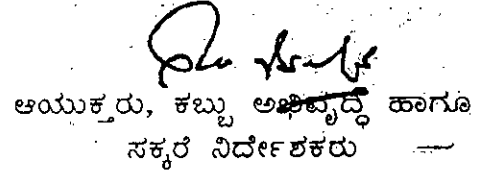 ಆಯುಕ್ತರು, ಕಬ್ಬು ಅಭಿವೃದ್ಧಿ ಹಾಗೂ
ಸಕ್ಕರೆ ನಿರ್ದೇಶಕರು